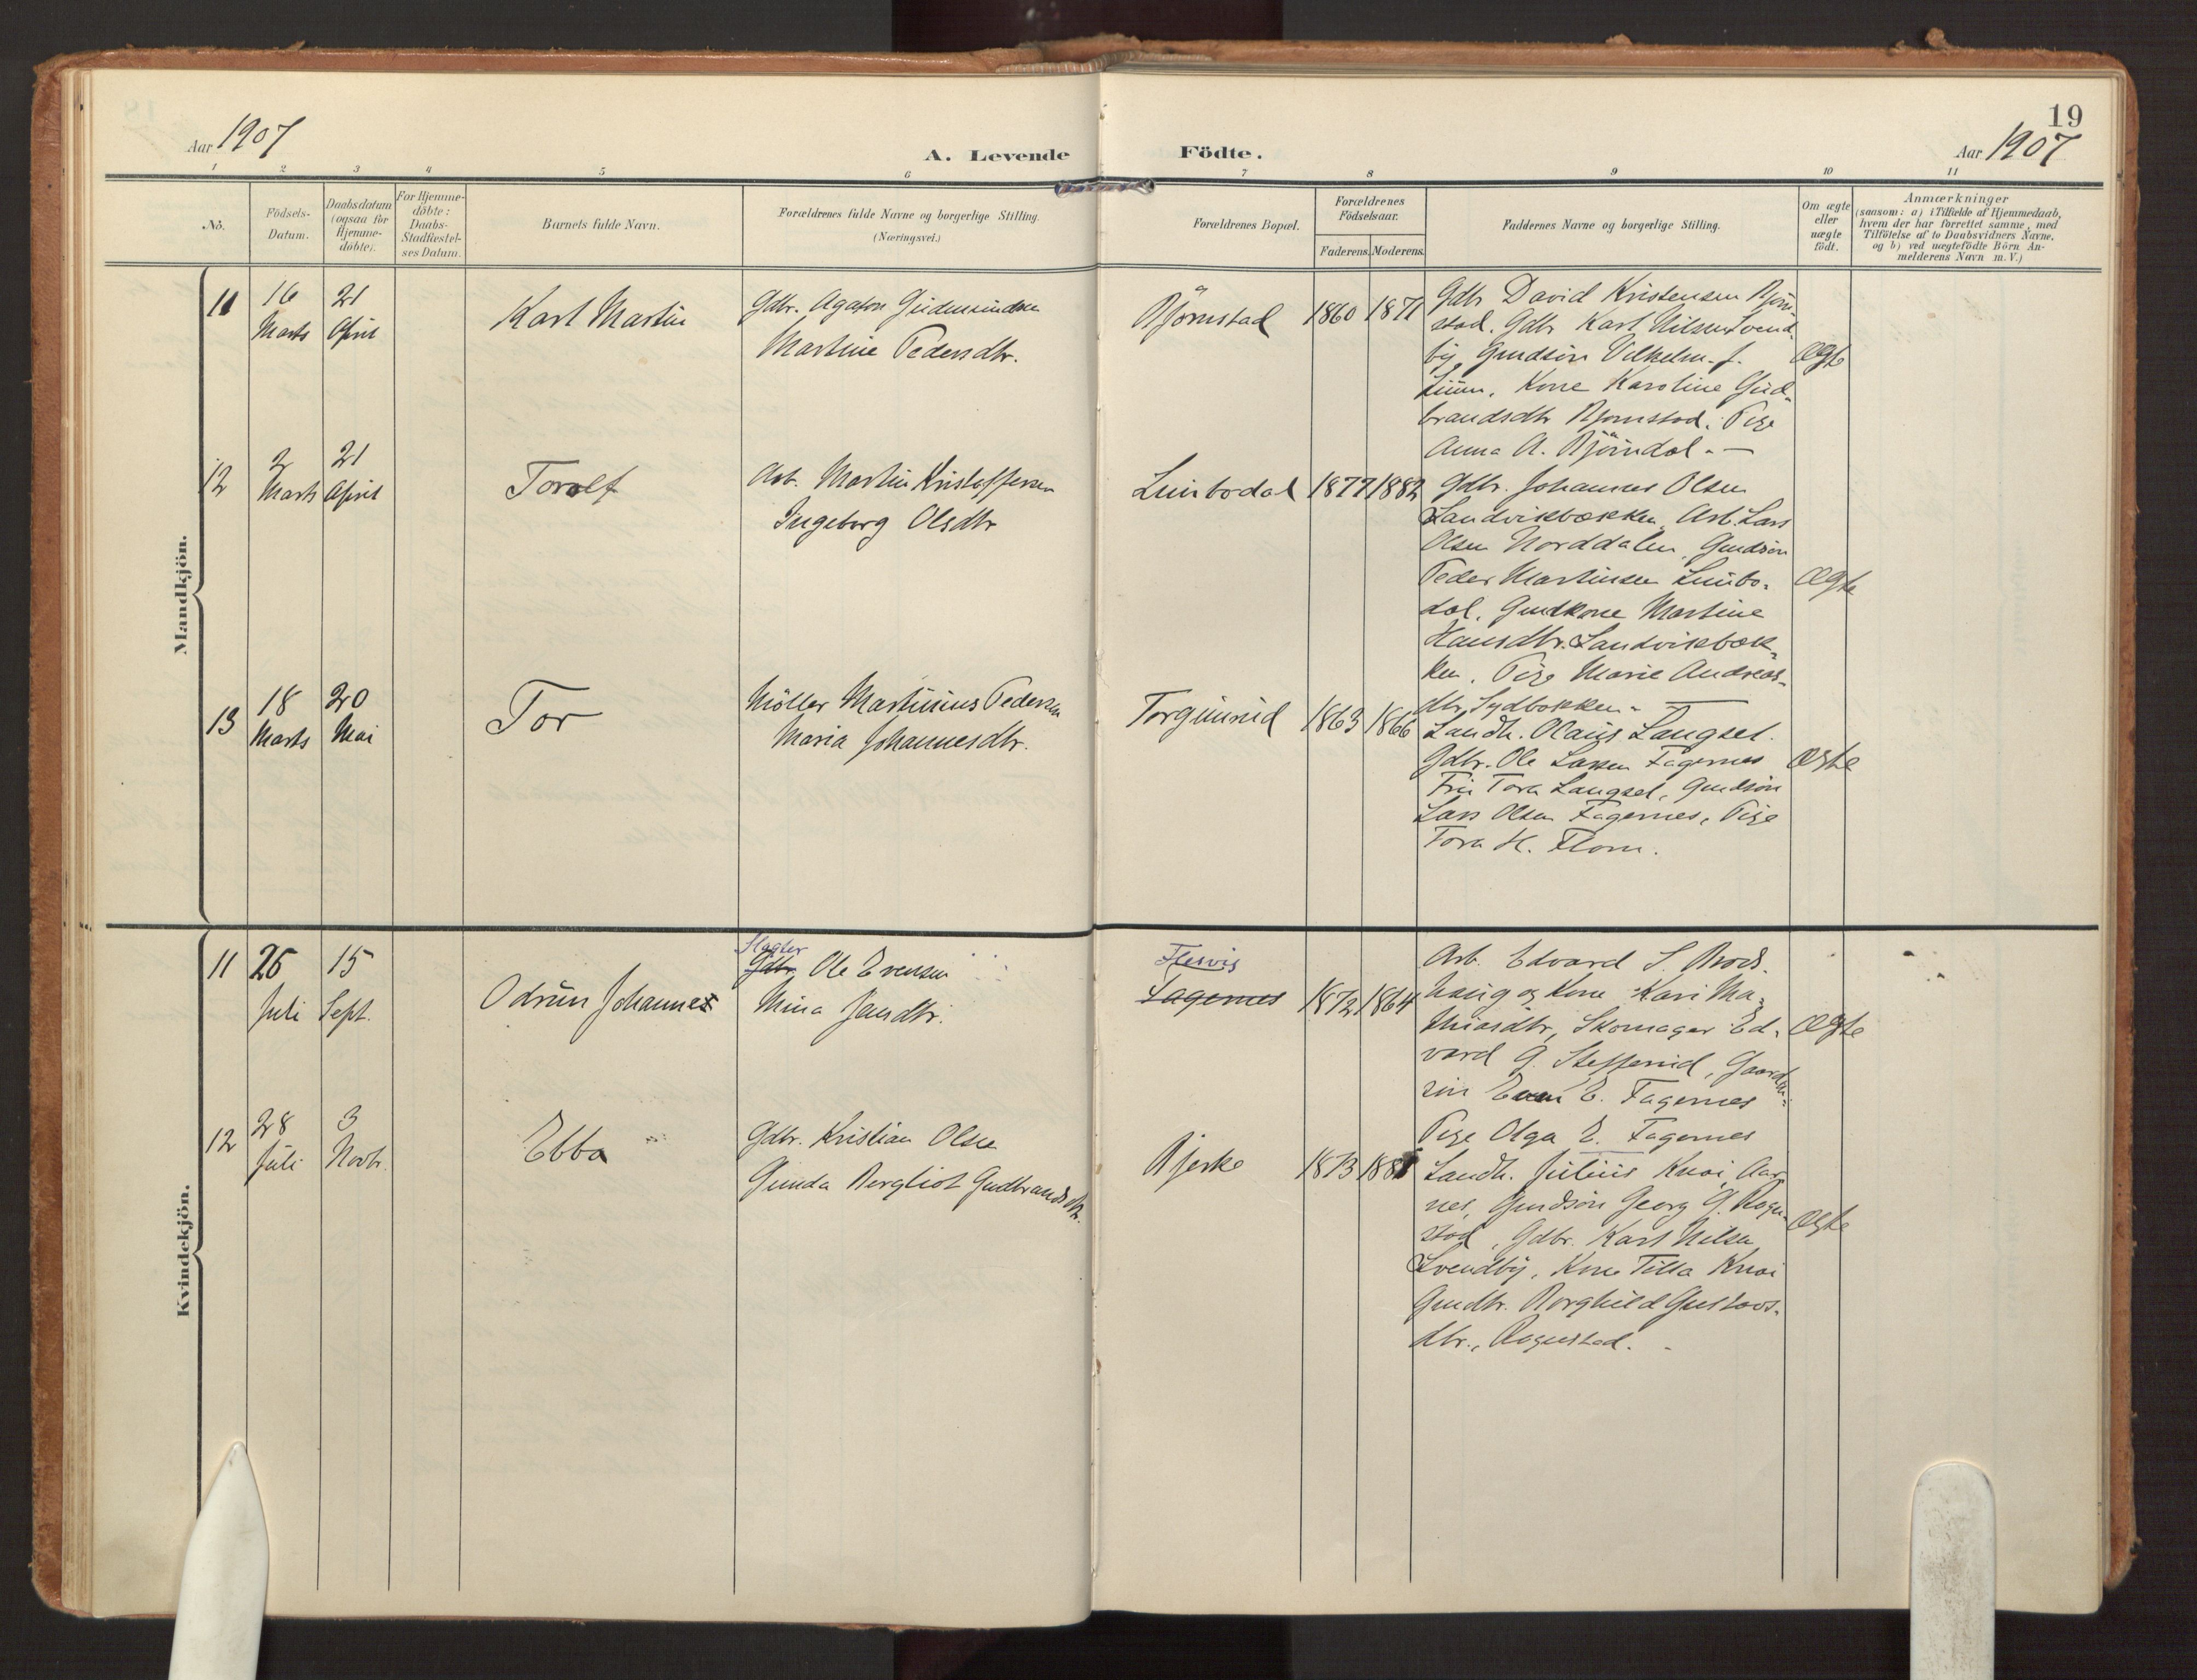 19
Aar 1907
A. Levende Födte.
Aar 1907
1 2 3 4 5 6 7 8 9 10 11
No.
Födsels-Datum.
Daabsdatum (ogsaa for Hjemme-döbte).
For Hjemme-döbte: Daabs-Stadfæstel-ses Datum.
Barnets fulde Navn.
Forældrenes fulde Navne og borgerlige Stilling.
(Næringsvei.)
Forældrenes Bopæl.
Forældrenes Födselsaar.
Faderens. Moderens.
Faddernes Navne og borgerlige Stilling.
Om ægte eller uægte födt.
Anmærkninger
(saasom: a) i Tilfælde af Hjemmedaab,
hvem der har forrettet samme, med
Tilföielse af to Daabsvidners Navne,
og b) ved uægtefödte Börn An-
melderens Navn m. V.)
Mandkjön.
11
16 Marts
21 April
Karl Martin
Gdbr. Agaton Gudmundsen
Martine Pedersdtr.
Bjørnstad
1860 1871
Gdbr David Kristensen Bjørn
stad. Gdbr Karl Nilsen Svend
by, Gmdsøn Vilhelm f.
Linm. Kone Karoline Gud-
brandsdtr Bjørnstad. Pige
Anna A. Bjørndal. —
Ægte
12
2 Marts
21 April
Torolf
Arb. Martin Kristoffersen
Ingeborg Olsdtr
Limbodal
1877 1882
Gdbr. Johannes Olsen
Sandvikbækken, Arb. Lars
Olsen Norddalen, Gmdsøn
Peder Martinsen Limbo-
dal, Gmdkone Martine
Hansdtr. Sandvikbæk-
ken. Pige Marie Andreas-
dtr Sydbækken. —
Ægte
13
18 Marts
20 Mai
Tor
Møller Martinius Pedersen
Maria Johannesdtr.
Torgunrud
1863 1866
Landh. Olaus Langset.
Gdbr. Ole Larsen Fagernes
Fru Tora Langset, Gmdsøn
Lars Olsen Fagernes, Pige
Tora H. Flom.
Ægte
Kvindekjön.
11
26 Juli
15 Sept.
Odrun Johanne
Slagter
Gdbr. Ole Evensen
Mina Jansdtr.
Flesvig
Fagernes
1872 1864
Arb. Edvard S. Brods-
haug og Kone Kari Ma-
thiasdtr, Skomager Ed-
vard G. Steffenrud, Gaard-
søn Even E. Fagernes
Pige Olga E. Fagernes
Ægte
12
28 Juli
3 Novbr.
Ebba
Gdbr. Kristian Olsen
Gunda Bergliot Gudbrandsdtr.
Bjerke
1873 1881
Landh. Julius Knai, Aar-
nes, Gmdsøn Georg G. Rogn-
stad, Gdbr. Karl Nilsen
Svendby, Kone Tilla Knai
Gmdtr. Borghild Gustavs-
dtr., Rognstad.
Ægte